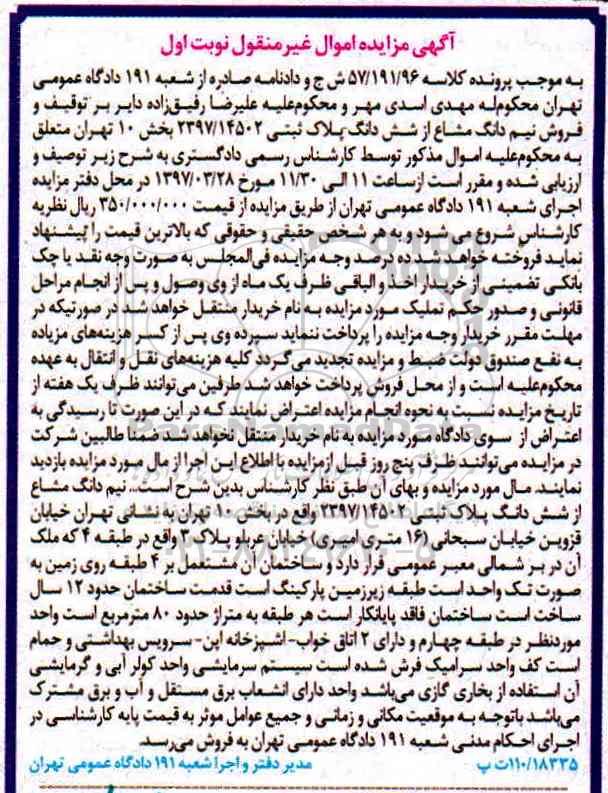 آگهی مزایده اموال غیر منقول نوبت اول
به موجب پرونده کلاسه ۵۷/۱۹۱/۹۶ ش ج و دادنامه صادره از شعبه ۱۹۱ دادگاه عمومی
تهران محکوم‌له مهدی اسدی مهر و محکوم‌علیه علیرضا رفیق‌زاده دایر بر توقیف و
فروش نیم دانگ مشاع از شش دانگ پلاک ثبتی ۲۳۹۷/۱۴۵۰۲ بخش ۱۰ تهران متعلق
به محکوم‌علیه اموال مذکور توسط کارشناس رسمی دادگستری به شرح زیر توصیف و
ارزیابی شده و مقرر است از ساعت ۱۱ الی ۱۱/۳۰ مورخ ۱۳۹۷/۰۳/۲۸ در محل دفتر مزایده
اجرای شعبه ۱۹۱ دادگاه عمومی تهران از طریق مزایده از قیمت ۳۵۰/۰۰۰/۰۰۰ ریال نظریه
کارشناس شروع می شود و به هر شخص حقیقی و حقوقی که بالاترین قیمت را پیشنهاد
نماید فروخته خواهد شد ده درصد وجه مزایده فی‌المجلس به صورت وجه نقد یا چک
بانکی تضمینی از خریدار اخذ و الباقی ظرف یک ماه از وی وصول و پس از انجام مراحل
قانونی و صدور حکم تملیک مورد مزایده به نام خریدار منتقل خواهد شد در صورتیکه در
مهلت مقرر خریدار وجه مزایده را پرداخت ننماید سپرده وی پس از کسر هزینه‌های مزیاده
به نفع صندوق دولت ضبط و مزایده تجدید می‌گردد کلیه هزینه‌های نقل و انتقال به عهده
محکوم‌علیه است و از محل فروش پرداخت خواهد شد طرفین می‌توانند ظرف یک هفته از
تاریخ مزایده نسبت به نحوه انجام مزایده اعتراض نمایند که در این صورت تا رسیدگی به
اعتراض از سوی دادگاه مورد مزایده به نام خریدار منتقل نخواهد شد ضمنا طالبین شرکت
در مزایده می‌توانند ظرف پنج روز قبل از مزایده با اطلاع این اجرا از مال مورد مزایده بازدید
نمایند. مال مورد مزایده و بهای آن طبق نظر کارشناس بدین شرح است... نیم دانگ مشاع
از شش دانگ پلاک ثبتی ۲۳۹۷/۱۴۵۰۲ واقع در بخش ۱۰ تهران به نشانی تهران خیابان
قزوین خیابان سبحانی (۱۶ متری امیری) خیابان عربلو پلاک ۳ واقع در طبقه ۴ که ملک
آن در بر شمالی معبر عمومی قرار دارد و ساختمان آن مشتعمل بر ۴ طبقه روی زمین به
صورت تک واحد است طبقه زیرزمین پارکینگ است قدمت ساختمان حدود ۱۲ سال
ساخت است ساختمان فاقد پایانکار است هر طبقه به متراژ حدود ۸۰ مترمربع است واحد
موردنظر در طبقه چهارم و دارای ۲ اتاق خواب- اشپزخانه اپن- سرویس بهداشتی و حمام
است کف واحد سرامیک فرش شده است سیستم سرمایشی واحد کولر آبی و گرمایشی
آن استفاده از بخاری گازی می‌باشد واحد دارای انشعاب برق مستقل و آب و برق مشترک
می‌باشد باتوجه به موقعیت مکانی و زمانی و جمیع عوامل موثر به قیمت پایه کارشناسی در
اجرای احکام مدنی شعبه ۱۹۱ دادگاه عمومی تهران به فروش می‌رسد.
۱۱۰/۱۸۳۳۵ت پ مدیر دفتر و اجرا شعبه ۱۹۱ دادگاه عمومی تهران
ParsNamadData